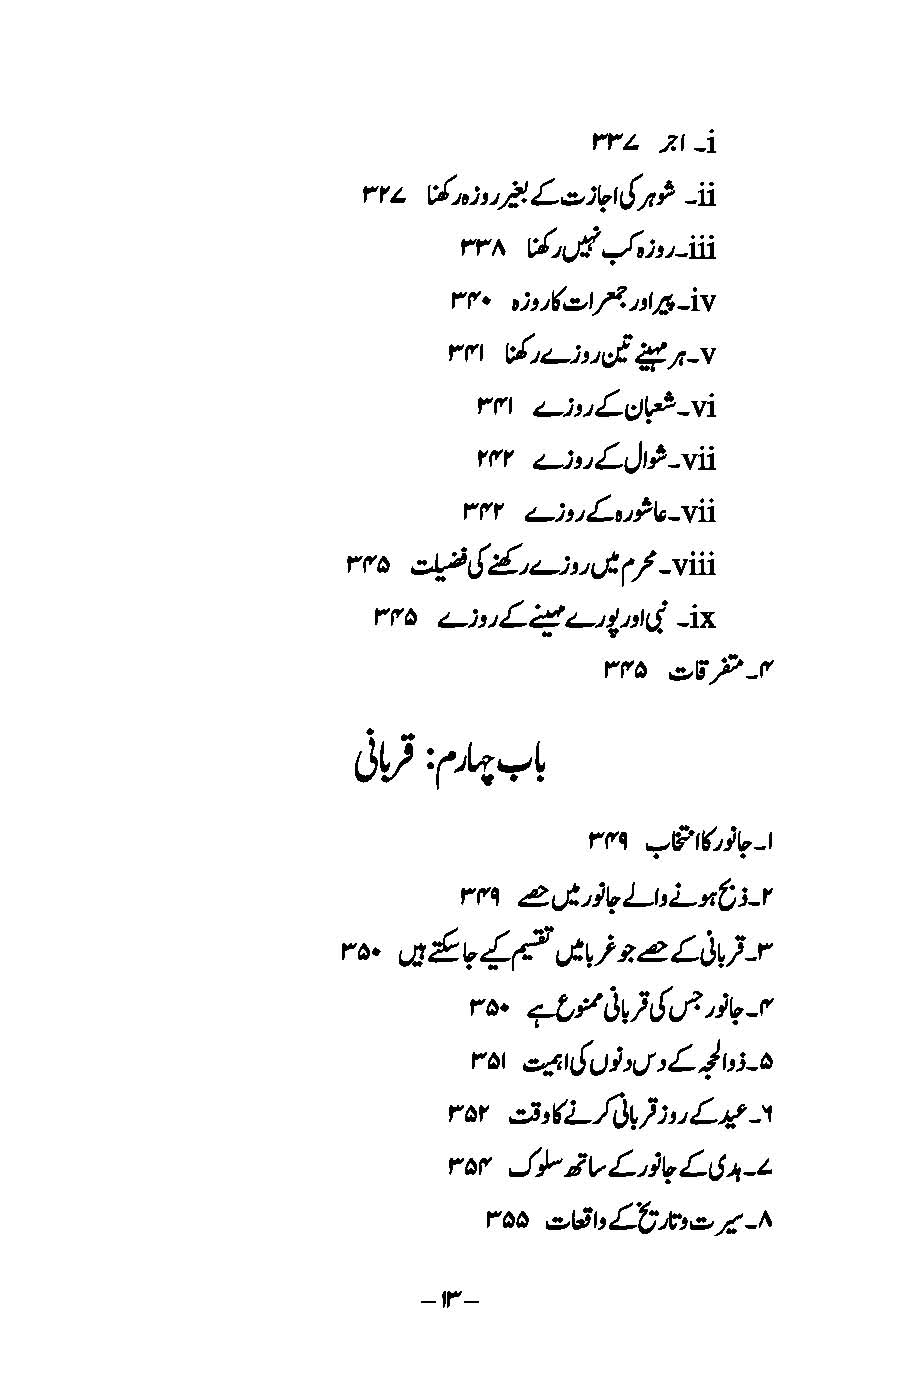 i۔ اجر ۳۳۷
ii۔ شوہر کی اجازت کے بغیر روزہ رکھنا ۳۲۷
iii۔روزہ کب نہیں رکھنا ۳۳۸
iv۔پیر اور جمعرات کا روزہ ۳۴۰
v۔ہر مہینے تین روزے رکھنا ۳۴۱
vi۔شعبان کے روزے ۳۴۱
vii۔شوال کے روزے ۲۴۲
vii۔عاشورہ کے روزے ۳۴۲
viii۔محرم میں روزے رکھنے کی فضیلت ۳۴۵
ix۔ نبی اور پورے مہینے کے روزے ۳۴۵
۴۔متفرقات ۳۴۵
باب چہارم: قربانی
۱۔جانور کا انتخاب ۳۴۹
۲۔ذبح ہونے والے جانور میں حصے ۳۴۹
۳۔قربانی کے حصے جو غربا میں تقسیم کیے جا سکتے ہیں ۳۵۰
۴۔جانور جس کی قربانی ممنوع ہے ۳۵۰
۵۔ذوالحجہ کے دس دنوں کی اہمیت ۳۵۱
۶۔عید کے روز قربانی کرنے کا وقت ۳۵۲
۷۔ہدی کے جانور کے ساتھ سلوک ۳۵۴
۸۔سیرت و تاریخ کے واقعات ۳۵۵
–۱۳–